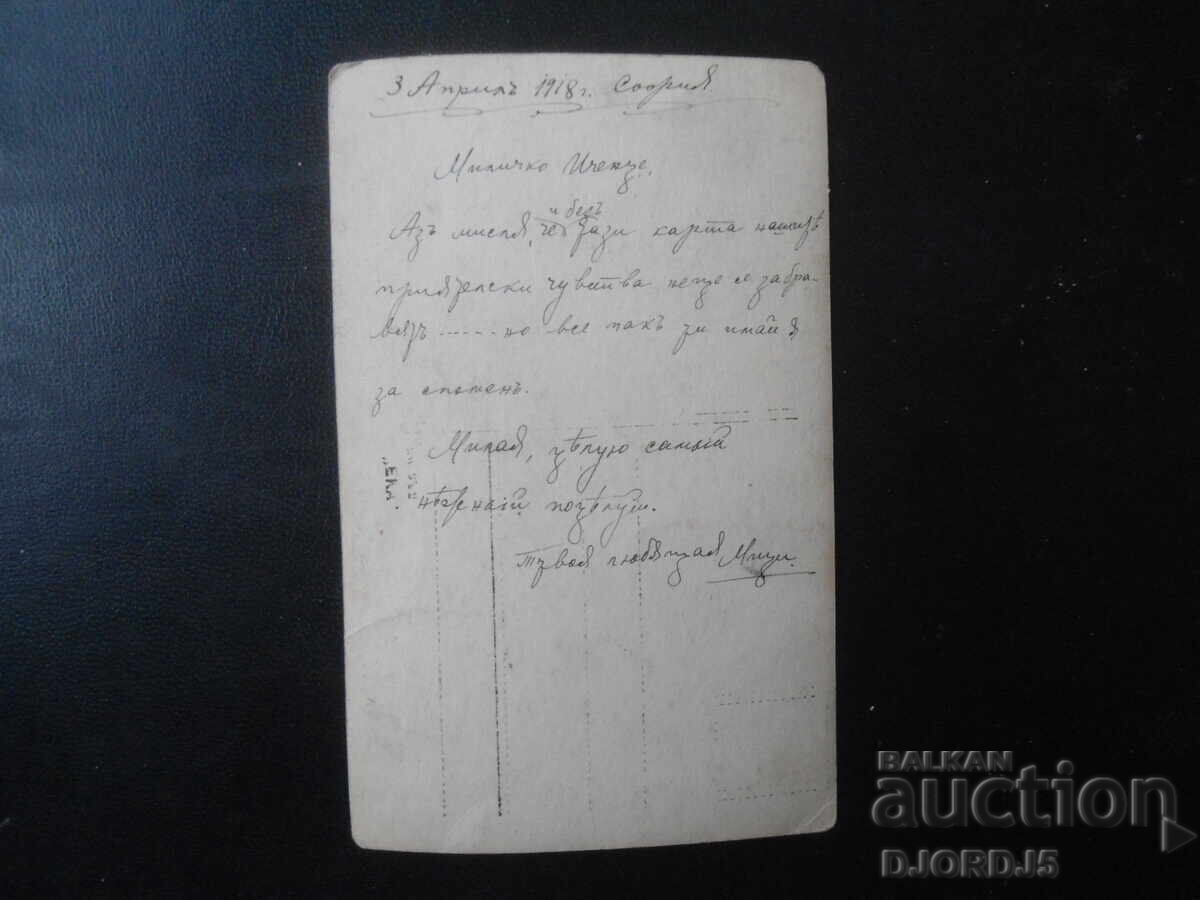 3 Априлъ 1918 г. София
Миличко Иченце.
и безъ
Азъ мисля, че тази карта нашитѣ
приятелски чувства неще се забра-
вятъ ------ но все пакъ ти имай я
за споменъ.
Милая, цѣлую самый
нѣжнаій поцѣлуй.
Твоя любящая Мици.
"ЕКА"
BALKAN
auction
DJORDJ5